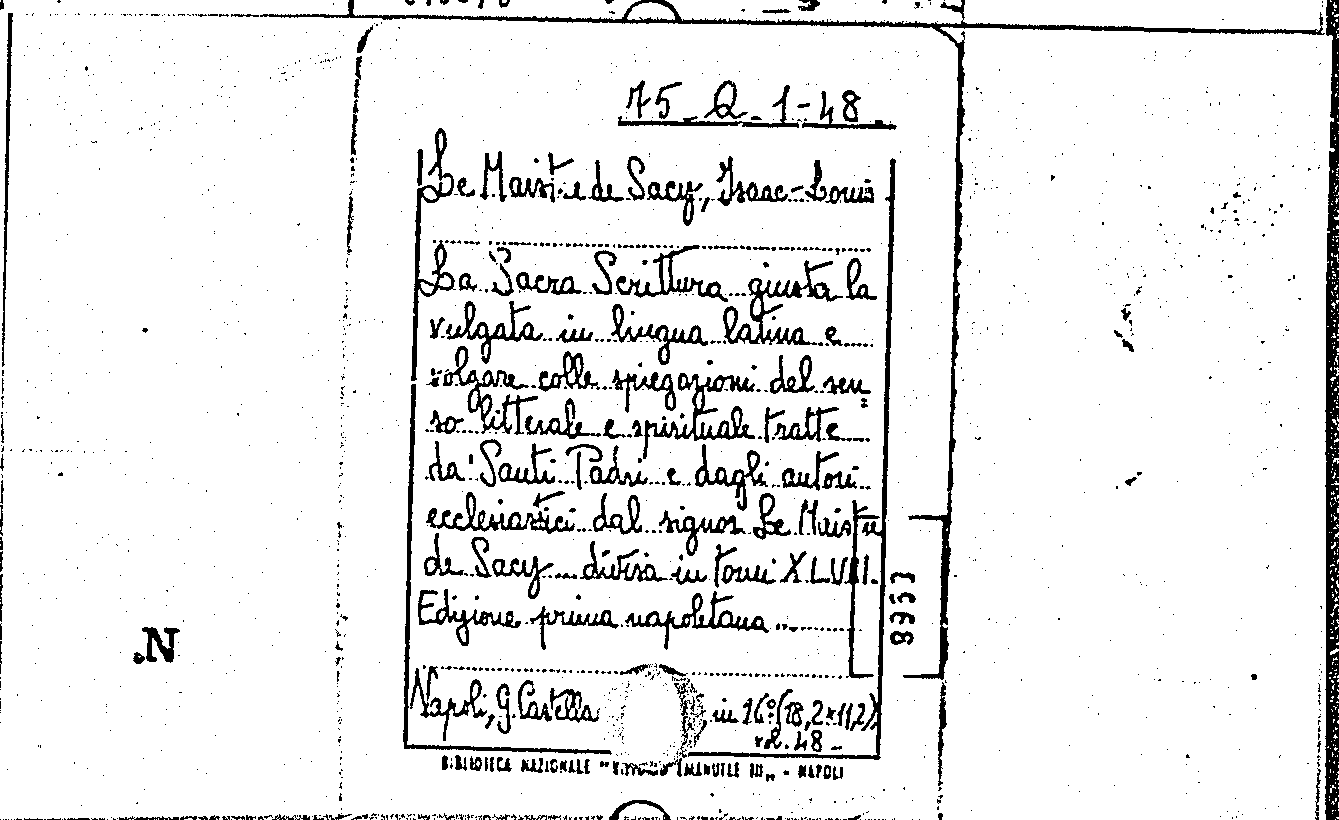 75_Q_1-48
Le Maistre de Sacy, Isaac-Louis
La Sacra Scrittura giusta la
vulgata in lingua latina e
volgare colle spiegazioni del sen
so litterale e spirituale tratte
da' Santi Padri e dagli autori
ecclesiastici dal signor Le Maistre
de Sacy... divisa in tomi XLVIII.
Edizione prima napoletana...
8953
.N
Napoli, G. Castella
, in 16º (18,2×11,2)
vol. 48 -
BIBLIOTECA NAZIONALE "VITTORIO EMANUELE III„ - NAPOLI